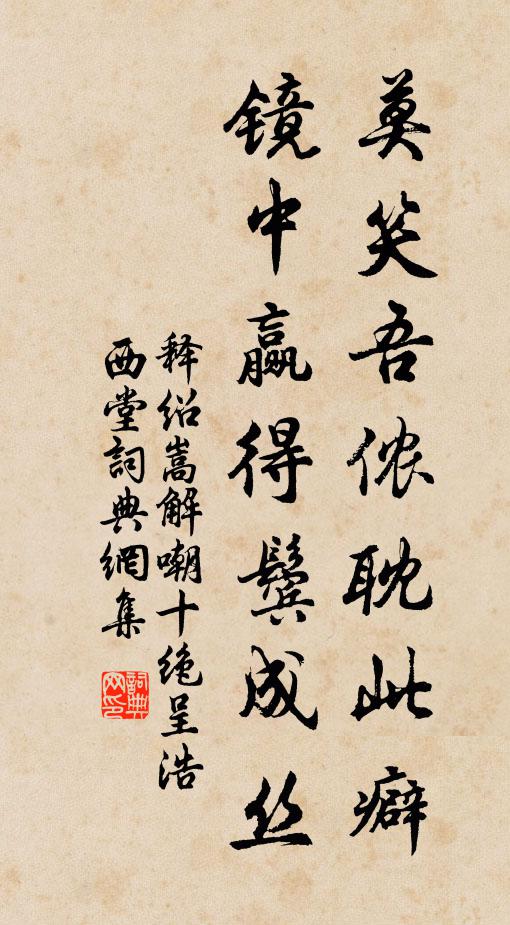 莫笑吾侬耽此癖
镜中赢得鬓成丝
释绍嵩解嘲十绝呈浩
西堂詞典網集
詞典網印